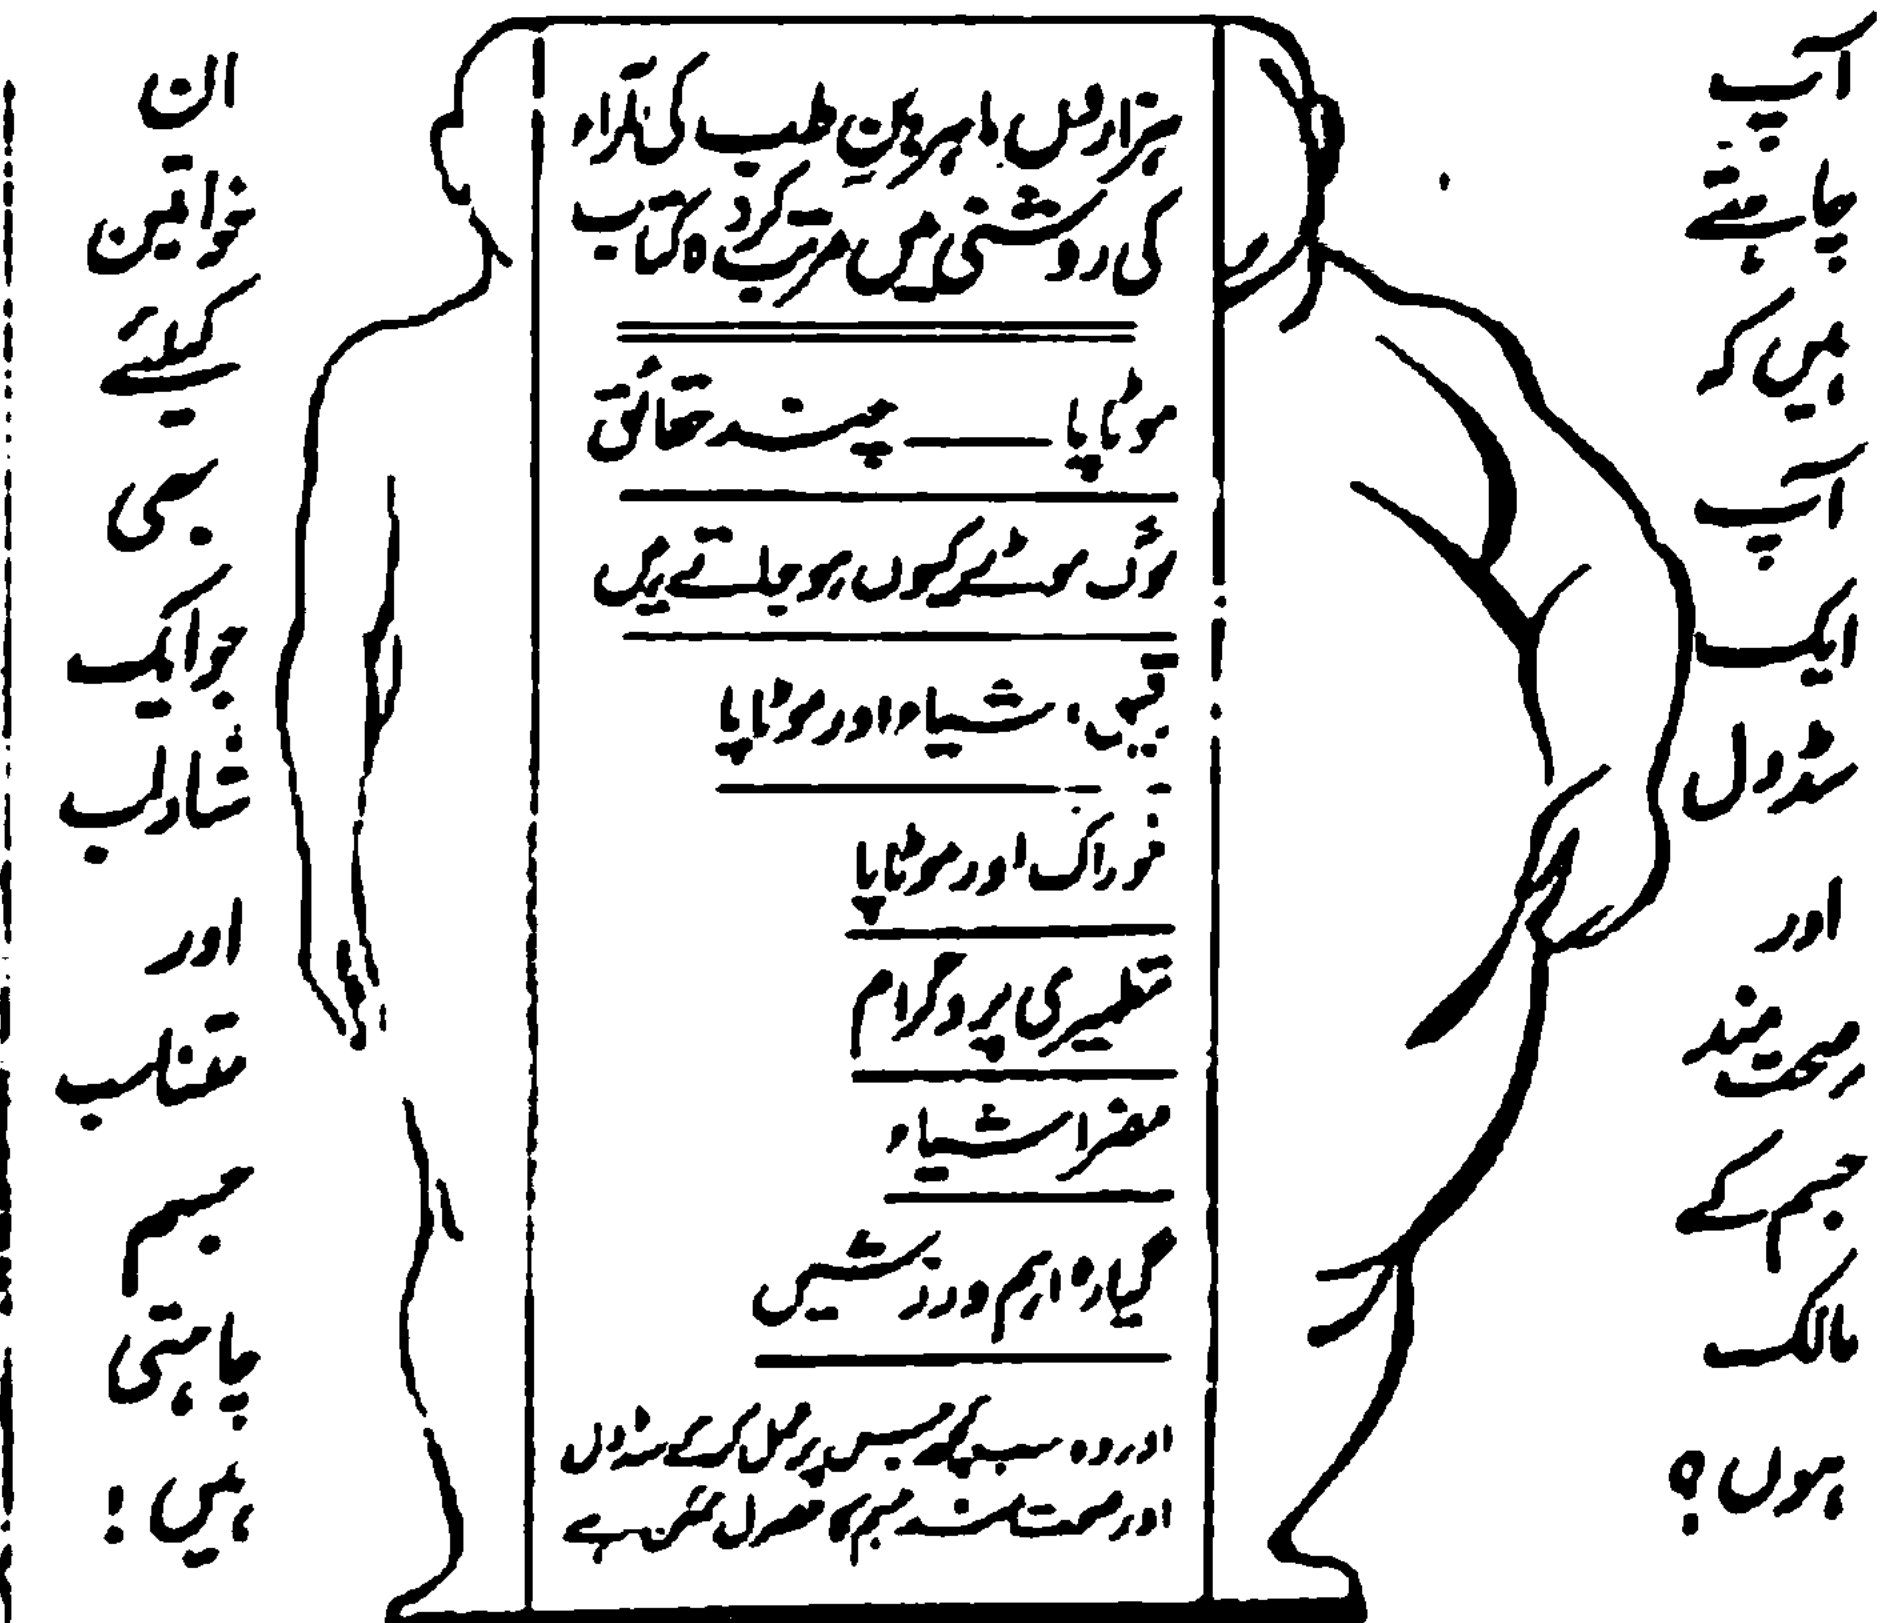 آپ
چاہتے
ہیں کہ
آپ
ایک
سڈول
اور
صحت مند
جسم کے
مالک
ہوں ؟
ہزاروں ماہرین طب کی آراء
کی روشنی میں مرتب کردہ کتاب
موٹاپا —— چند حقائق
لوگ موٹے کیوں ہو جاتے ہیں
اشیاء اور موٹاپا
خوراک اور موٹاپا
تطہیری پروگرام
مضر اشیاء
گیارہ اہم ورزشیں
اور وہ سب کچھ جس پر عمل کر کے سڈول
اور صحت مند جسم کا حصول ممکن ہے
ان
خواتین
کیلئے
بھی
جو ایک
شاداب
اور
متناسب
جسم
چاہتی
ہیں !